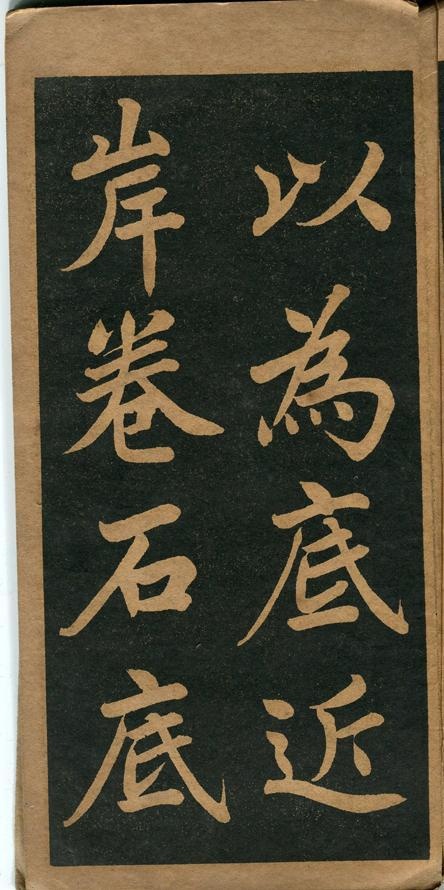 以為底近
岸卷石底